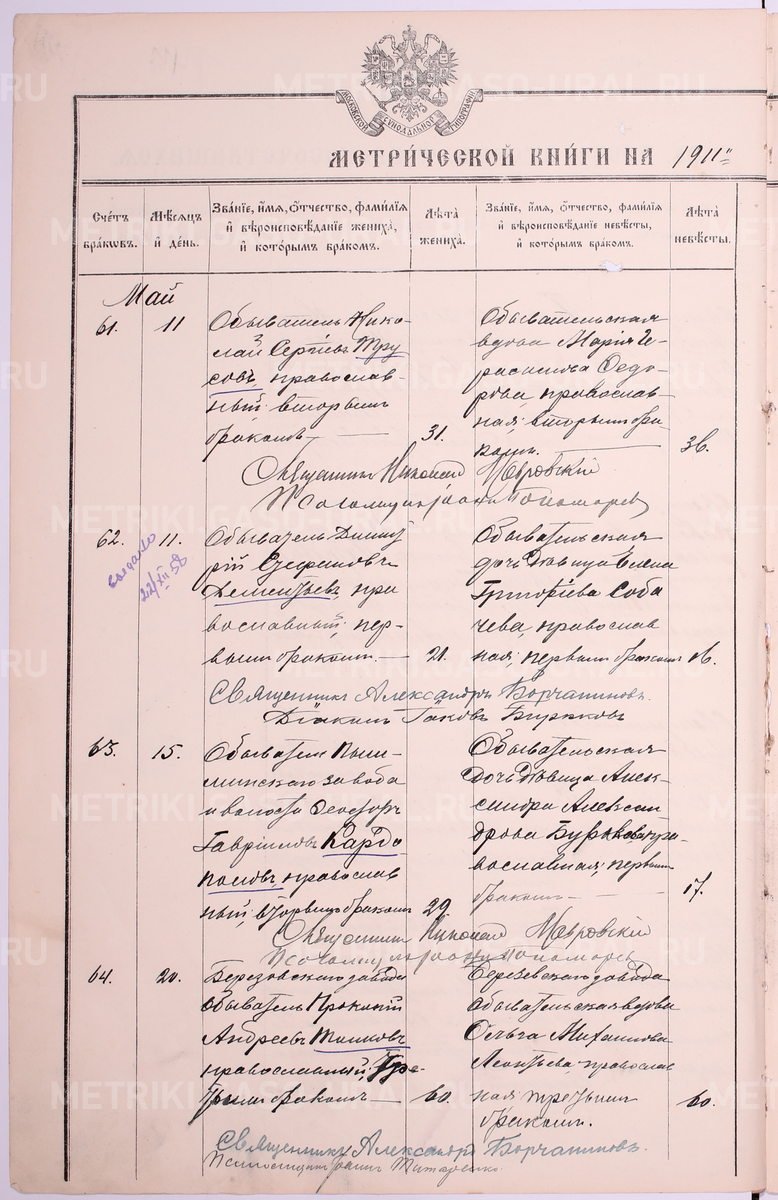 МОСКОВСКОЙ СѴНОДАЛЬНОЙ ТИПОГРАФІИ
МЕТРИ́ЧЕСКОЙ КНИ́ГИ НА 1911
Сче́тъ бра́ковъ.
Мѣ́сяцъ и҆ де́нь.
Зва́ніе, и҆́мя, ѻ҆́тчество, фами́лія и҆ вѣроисповѣ́даніе жениха̀, и҆ кото́рымъ бра́комъ.
Лѣ́та жениха̀.
Зва́ніе, и҆́мя, ѻ҆́тчество, фами́лія и҆ вѣроисповѣ́даніе невѣ́сты, и҆ кото́рымъ бра́комъ.
Лѣ́та невѣ́сты.
Май
61.
11
Обыватель Нико-
лай Сергѣевъ Тру
совъ, православ-
ный; вторымъ
бракомъ
31.
Обывательская
вдова Марія Ге-
расимова Ѳедо-
рова, православ-
ная; вторымъ бра
комъ.
36.
Священникъ Николай
62.
11.
22/XII 58
Обыватель Дими
рій Стефановъ
Дементьевъ, пра
вославный; пер-
вымъ бракомъ.
21.
Обывательская
дочь дѣвица Елена
Григоріева Соба
чева, православ
ная; первымъ бракомъ
18.
Священникъ Александръ Борчаниновъ.
Діаконъ Іаковъ Бирюковъ
63.
15.
Обыватель Пыш-
минскаго завода
и волости Ѳеодоръ
Гавріиловъ Кардо
половъ, православ
ный; вторымъ бракомъ
29.
Обывательская
дочь дѣвица Алек-
сандра Алексан
дрова Буркова, пра
вославная, первымъ
бракомъ
17.
Священникъ Николай
64.
20.
Березовскаго завода
обыватель Прокопій
Андреевъ
православный; тре-
тьимъ бракомъ
60.
Березовскаго завода
обывательская вдова
Ольга Михаилова
Леонтьева, православ
ная третьимъ
бракомъ.
60.
Священникъ Александръ Борчаниновъ.
METRIKI.GASO-URAL.RU